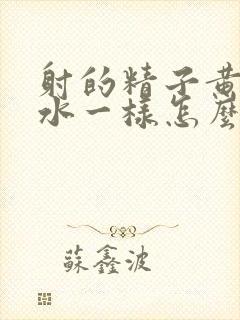 射的精子黄
水一樣怎麼
蘇鑫波